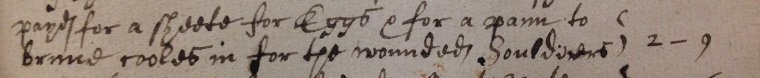 payd for a sheete for Eggs & for a pann to
brnne cooles in for the wounded Souldiers) 2 – 9